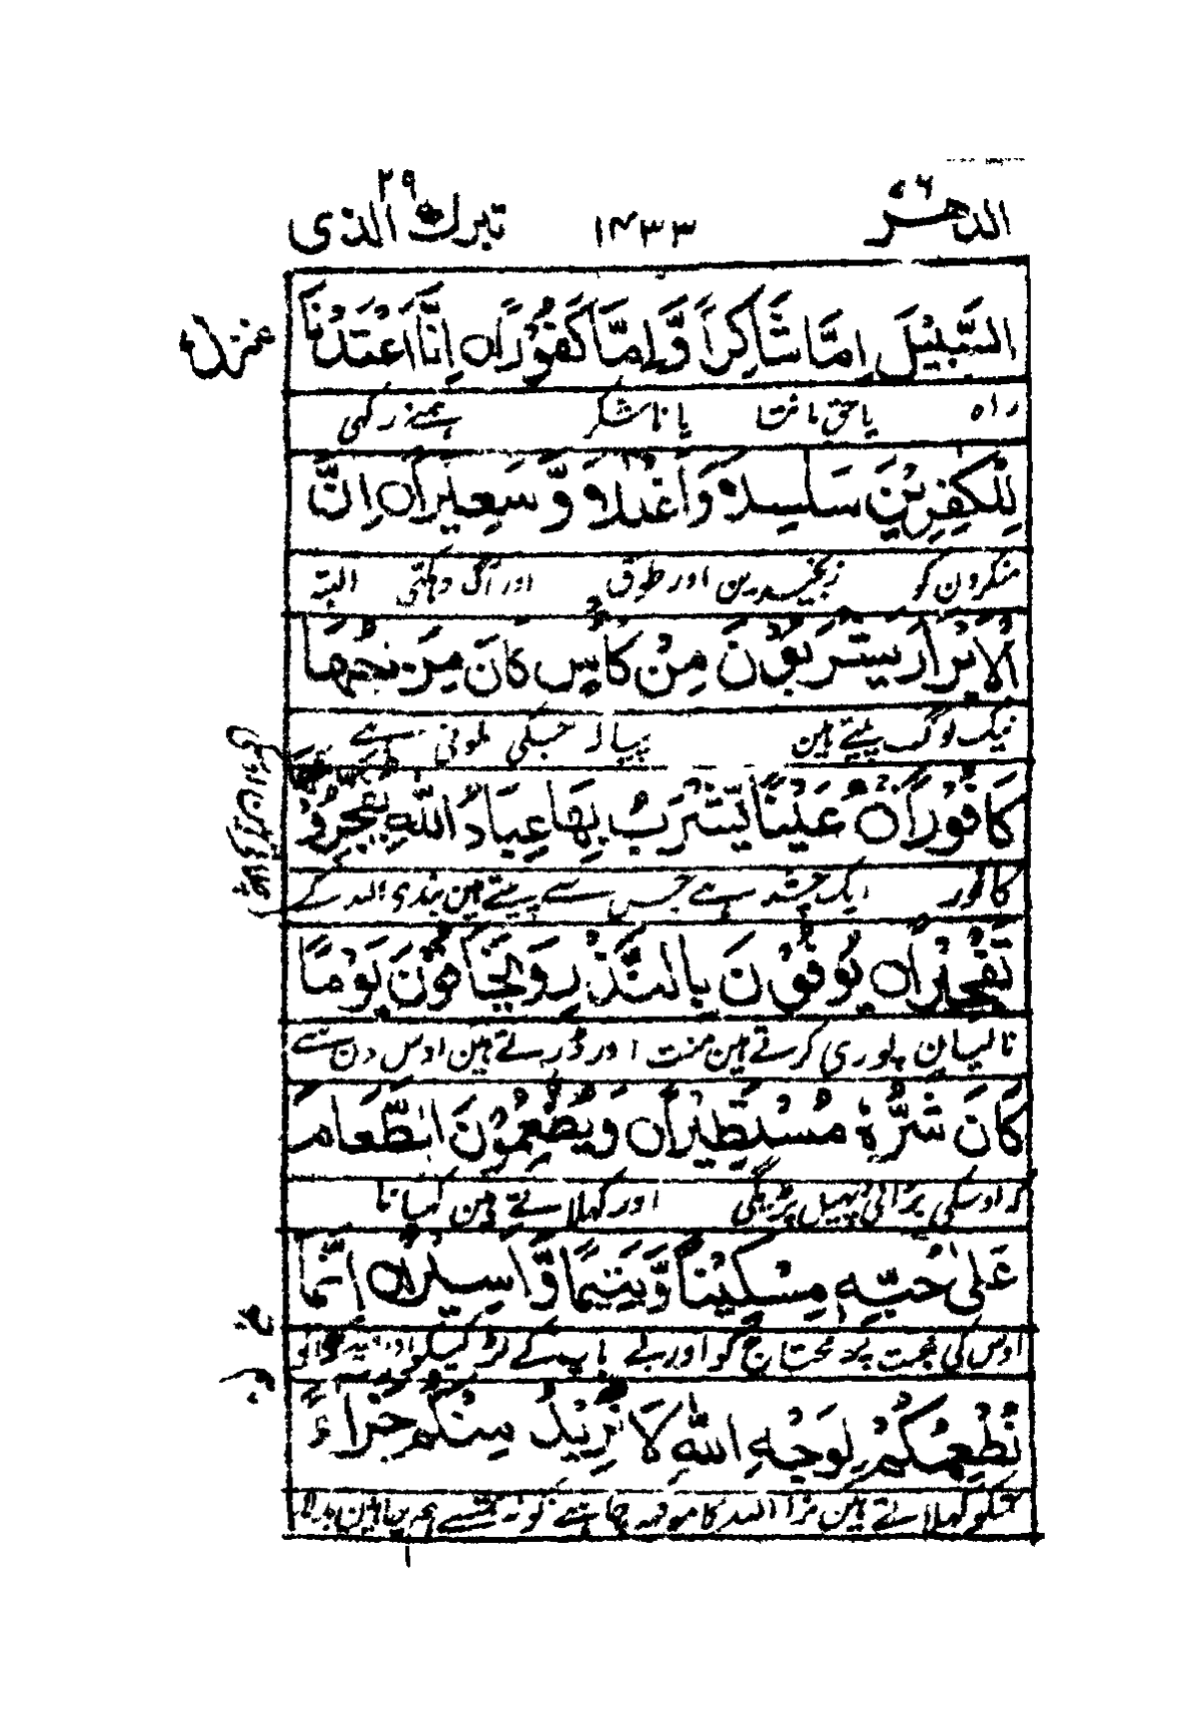 الدهر ٧٦ ١٤٣٣ تبرك الذى ٢٩
السَّبِيْلَ اِمَّا شَاكِرًا وَّاِمَّا كَفُوْرًا○ اِنَّا اَعْتَدْنَا
راہ یا حق مانتا یا ناشکر ہمنے رکھی
لِلْكٰفِرِيْنَ سَلٰسِلَا۟ وَاَغْلٰلًا وَّ سَعِيْرًا○ اِنَّ
منکرون کو زنجیرین اور طوق اور آگ دہکتی البتہ
الْاَبْرَارَ يَشْرَبُوْنَ مِنْ كَاْسٍ كَانَ مِزَاجُهَا
نیک لوگ پیتے ہین پیالہ جسکی ملونی ہے
كَافُوْرًا○ عَيْنًا يَّشْرَبُ بِهَا عِبَادُ اللّٰهِ يُفَجِّرُوْنَهَا
کافور ایک چشمہ ہے جس سے پیتے ہین بندی اللہ کے
تَفْجِيْرًا○ يُوْفُوْنَ بِالنَّذْرِ وَيَخَافُوْنَ يَوْمًا
نالیان پوری کرتے ہین منت اور ڈرتے ہین اوس دن سے
كَانَ شَرُّهٗ مُسْتَطِيْرًا○ وَيُطْعِمُوْنَ الطَّعَامَ
کہ اوسکی برائی پھیل پڑیگی اور کھلاتے ہین کھانا
عَلٰى حُبِّهٖ مِسْكِيْنًا وَّيَتِيْمًا وَّاَسِيْرًا○ اِنَّمَا
اوس کی محبت پر محتاج کو اور بے باپ کے لڑکیکو اور
نُطْعِمُكُمْ لِوَجْهِ اللّٰهِ لَا نُرِيْدُ مِنْكُمْ جَزَآءً
تمکو کھلاتے ہین نرا اللہ کا مونہہ چاہنے کو نہ تمسے ہم چاہین بدلا